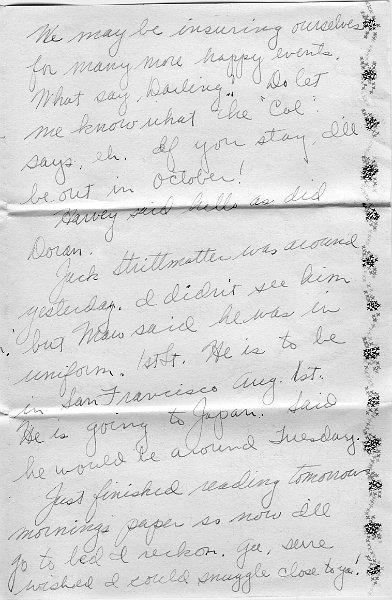 We may be insuring ourselves
for many more happy events.
What say, Darling? Do let
me know what the "Col".
says, eh. If you stay, I'll
be out in October!
Harvey said hello as did
Doran.
Jack Strittmatter was around
yesterday. I didn't see him
but Maw said he was in
uniform. 1st Lt. He is to be
in San Francisco Aug. 1st.
He is going to Japan. Said
he would be around Tuesday.
Just finished reading tomorrows
mornings paper so now I'll
go to bed I reckon. Gee, sure
wished I could snuggle close to ya!